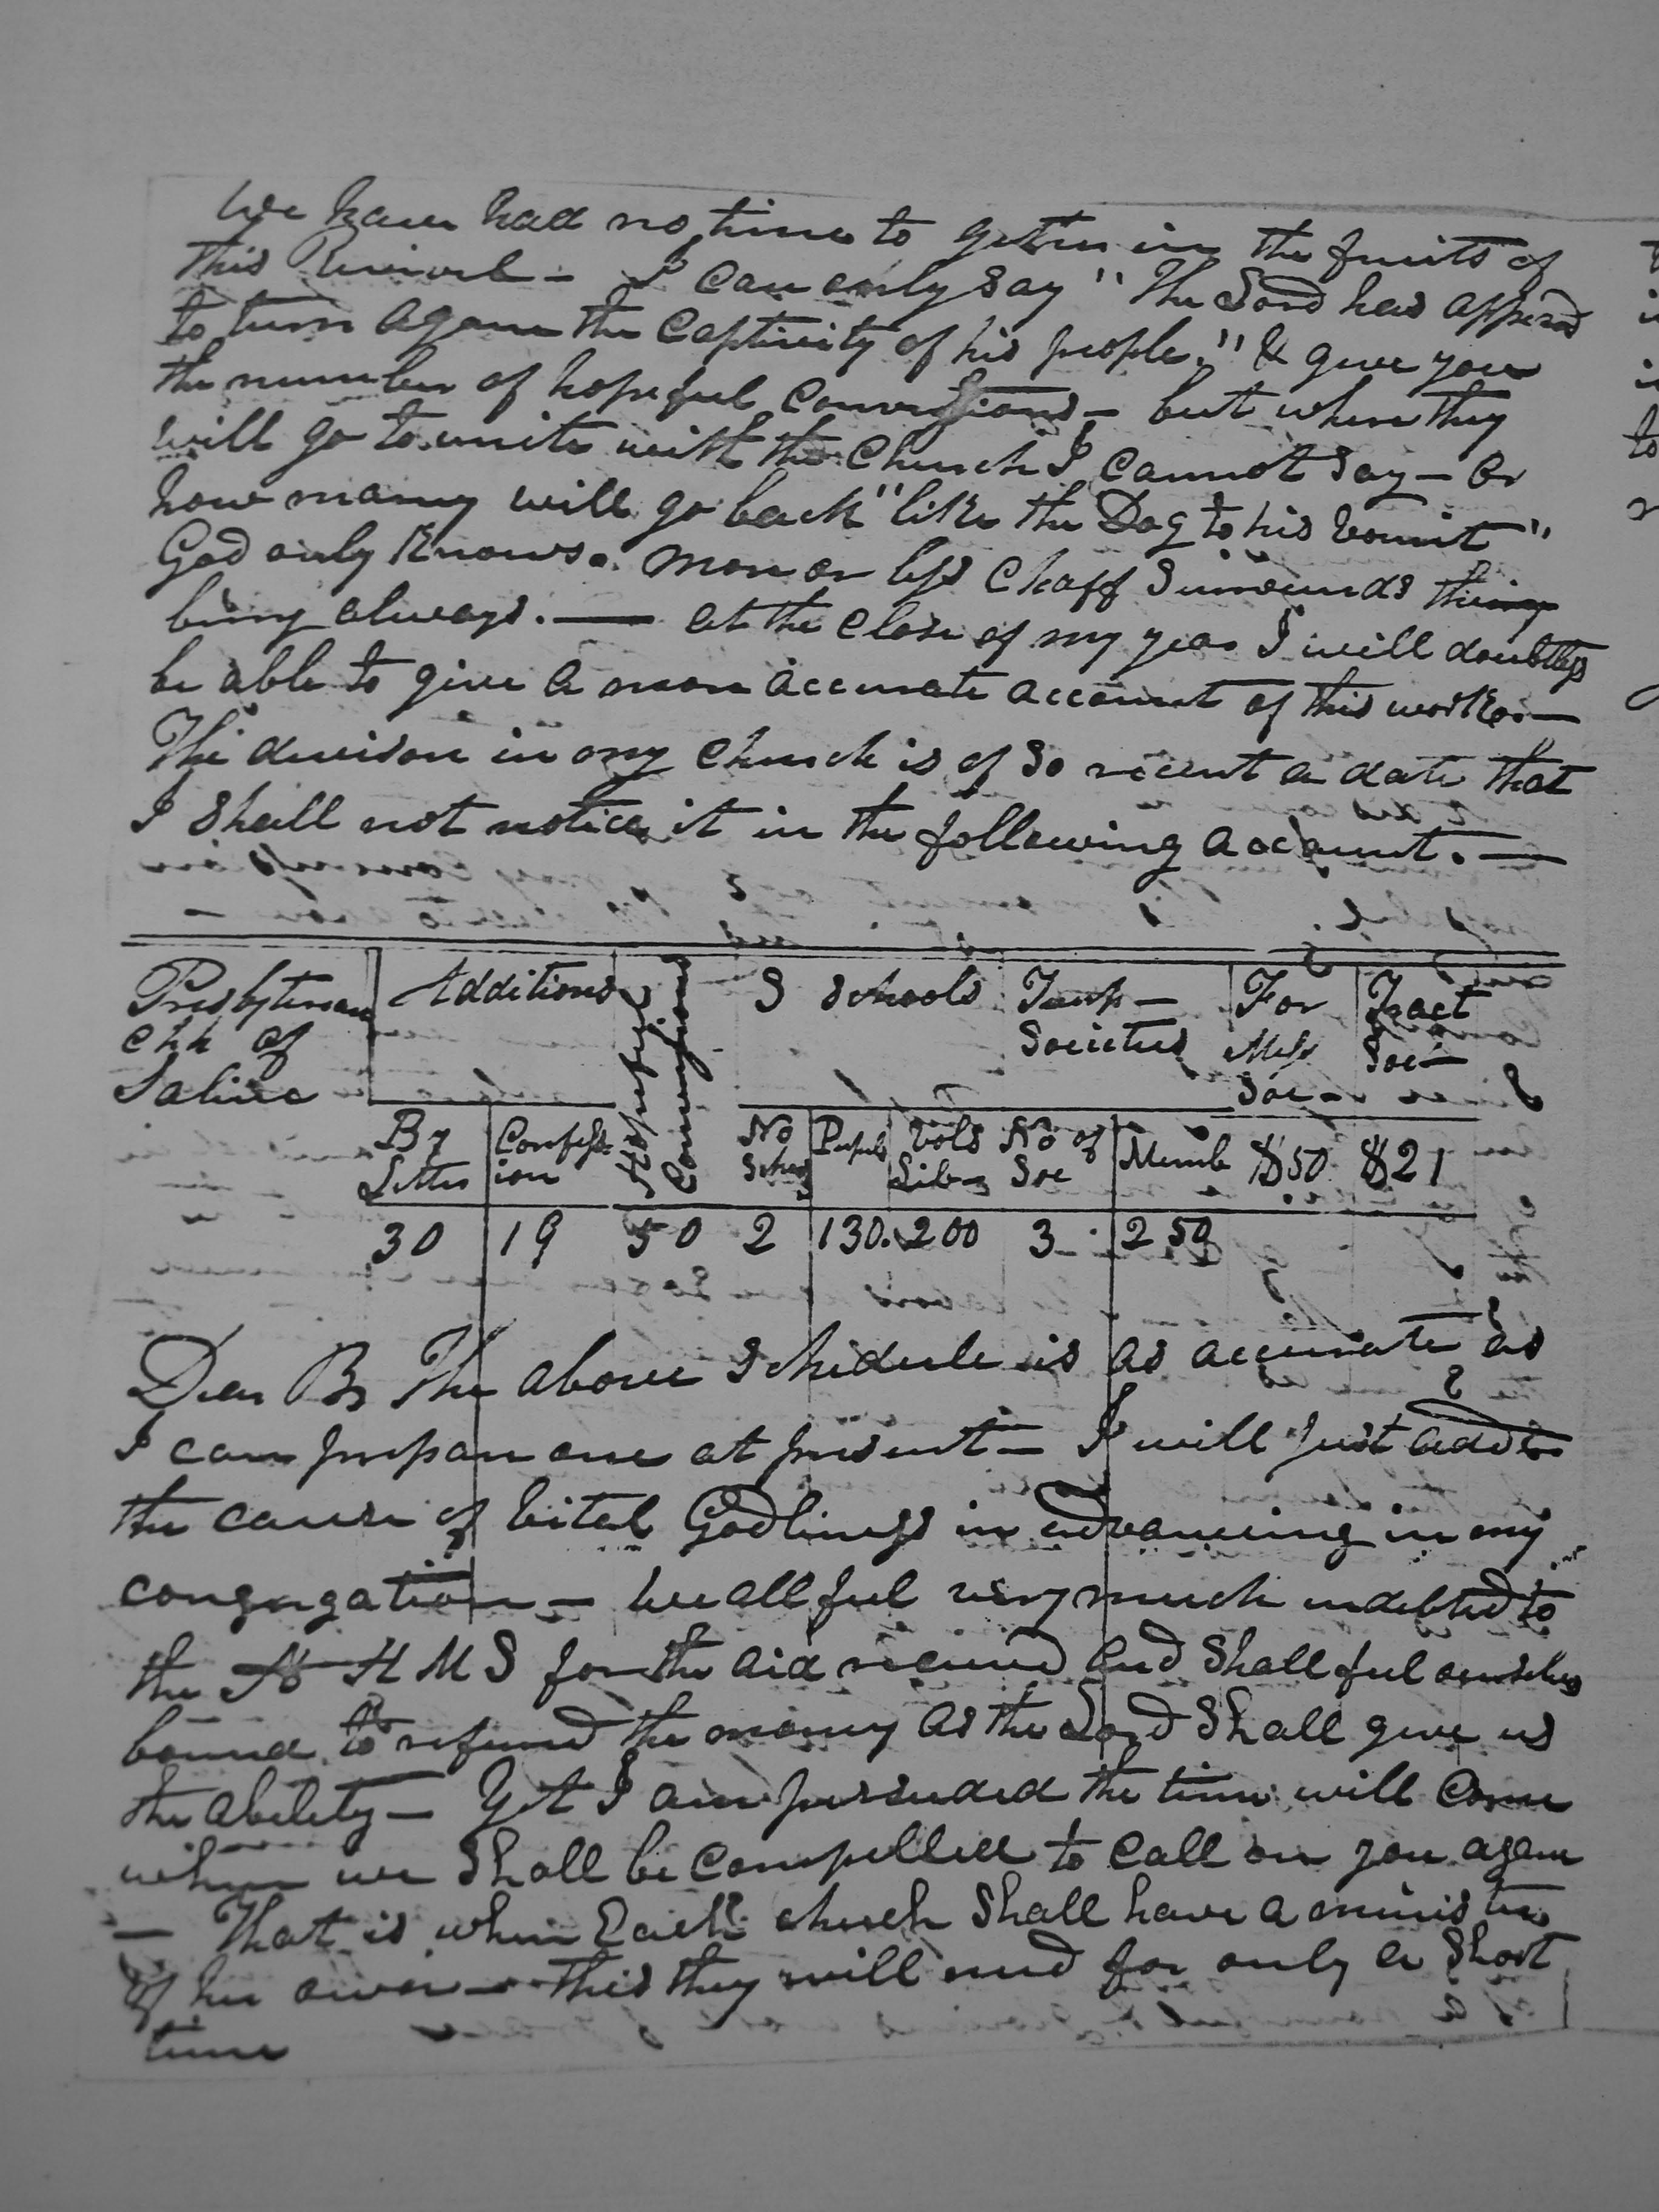 We have had no time to gather in the fruits of
this Revival - I can only say "The Lord has appeard
to turn again the Captivity of his people," & give you
the number of hopeful conversions - but where they
will go to unite with the Church I cannot say - Or
how many will go back "like the Dog to his vomit"
God only knows. More or less Chaff Surrounds
being always. — At the close of my year I will doubtless
be able to give a more accurate account of this work. —
The division in my Church is of So recent a date that
I Shall not notice it in the following account. —
Presbyterian
Chh of
Saline
Additions
Hopeful
Conversions
S Schools
Temp -
Societies
For
Miss
Soc -
Tract
Soc -
By
Letter
Confess
ion
No
Schos
Pupils
Vols
Lib-y
No of
Soc
Memb
$50
$21
30 19 50 2 130. 200 3 250
Dear Br The above Schedule is as accurate as
I can prepare one at present - I will just add to
the cause of Vital Godliness in advancing in my
congregation - We all feel very much indebted to
the A H M S for the aid received and Shall feel ourselves
bound to refund the money as the Lord Shall give us
the ability - Yet I am persuaded the time will come
when we Shall be compelled to call on you again
- That is when Each church Shall have a minister
of her own - this they will need for only a Short
time